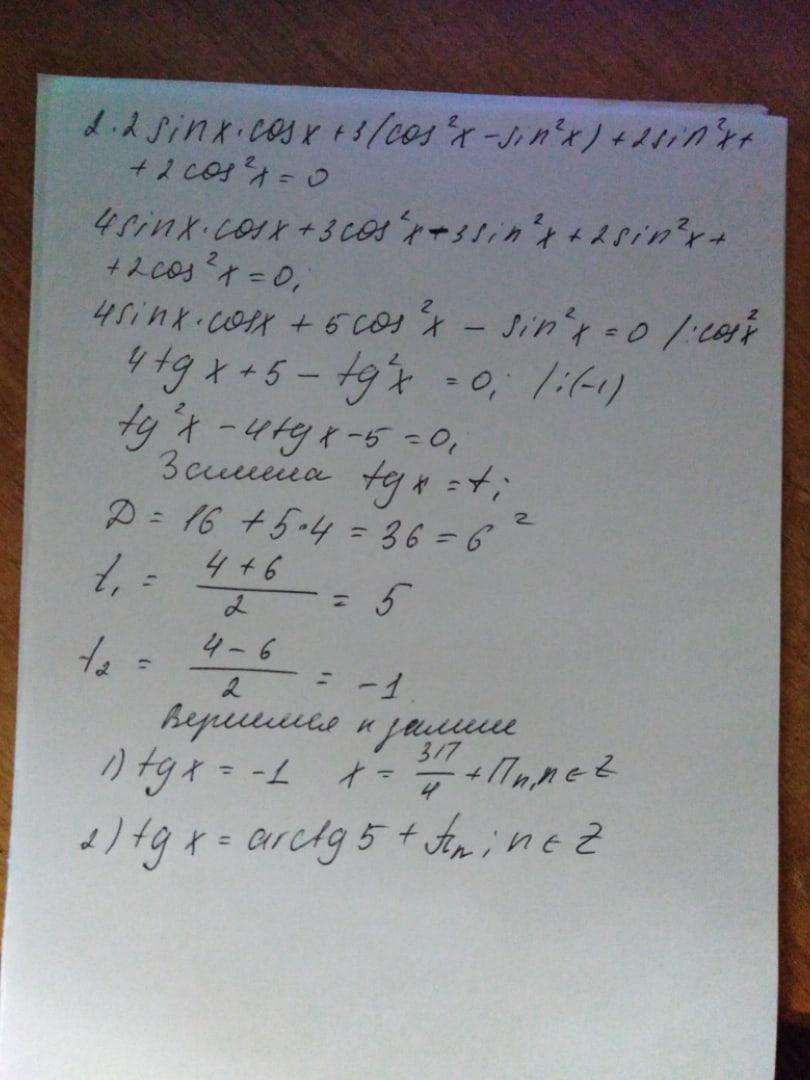 2·2sinx·cosx+3(cos²x-sin²x)+2sin²x+
+2cos²x=0
4sinx·cosx+3cos²x-3sin²x+2sin²x+
+2cos²x=0;
4sinx·cosx+5cos²x-sin²x=0 /:cos²x
4tgx+5-tg²x=0; /:(-1)
tg²x-4tgx-5=0;
Замена tgx=t;
Д=16+5·4=36=6²
t₁=(4+6)/2=5
t₂=(4-6)/2=-1
Вернемся к замене
1) tgx=-1 x=3П/4+Пn, n∈Z
2) tgx=arctg5+πn; n∈Z